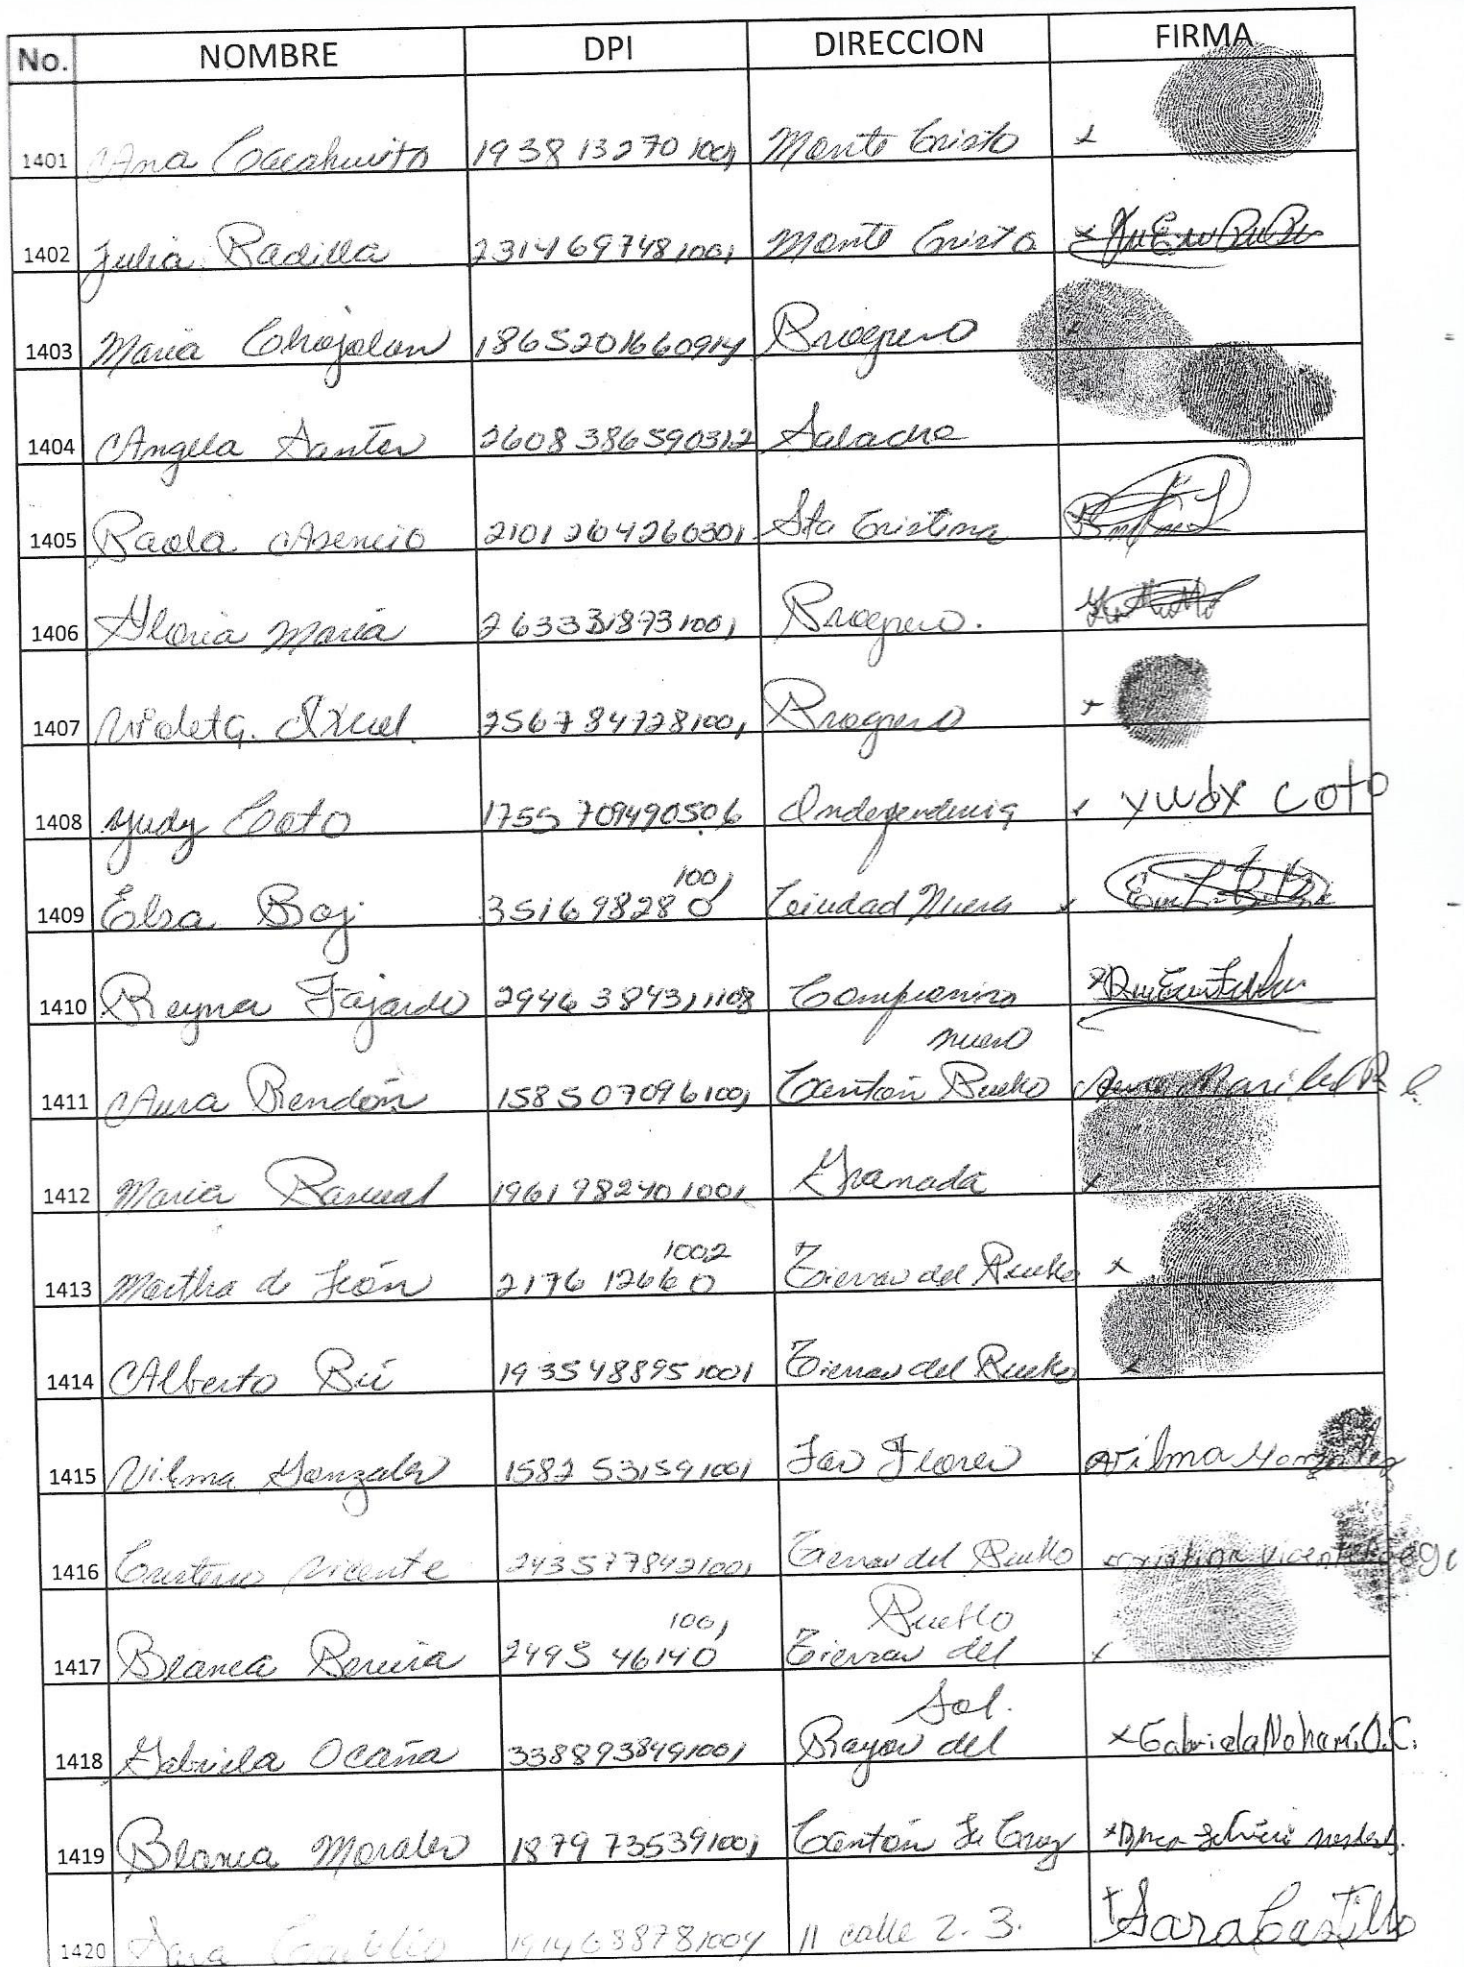 No. NOMBRE DPI DIRECCION FIRMA
1401 Ana 1938132701001 Monte Cristo x
1402 Julia Padilla 2314697481001 Monte Cristo x
1403 Maria Chajalan 1865201660914 Progreso x
1404 Angela Santes 2608386590312 Salache
1405 Paola Asencio 2101264260301 Sta Cristina
1406 Gloria Maria 1001 Progreso.
1407 Violeta. 2567847281001 Progreso x
1408 Yudy Coto 1755709490506 Independencia x YUdY COtO
1001
1409 Elsa Boj 351698280 Ciudad Nueva x
1410 Reyna Fajardo 2946384311108 x
nuevo
1411 Aura Rendón 1585070961001 Cantón Pueblo
1412 Maria Pascual 1961982401001 Granada x
1002
1413 Martha de León 217612660 Tierras del Pueblo x
1414 Alberto Bú 1935488951001 Tierras del Pueblo x
1415 Vilma Gonzalez 1582531591001 Las Flores Vilma Gonzalez
1416 Vicente 2435778421001 Tierras del Pueblo
1001 Pueblo
1417 Blanca Pereira 249546140 Tierras del x
Sol.
1418 Gabriela Ocaña 3388938491001 Rayos del x Gabriela Nohemí O.C.
1419 Blanca Morales 1879735391001 Cantón La Cruz x
1420 Sara Castillo 11 calle 2.3. Sara Castillo